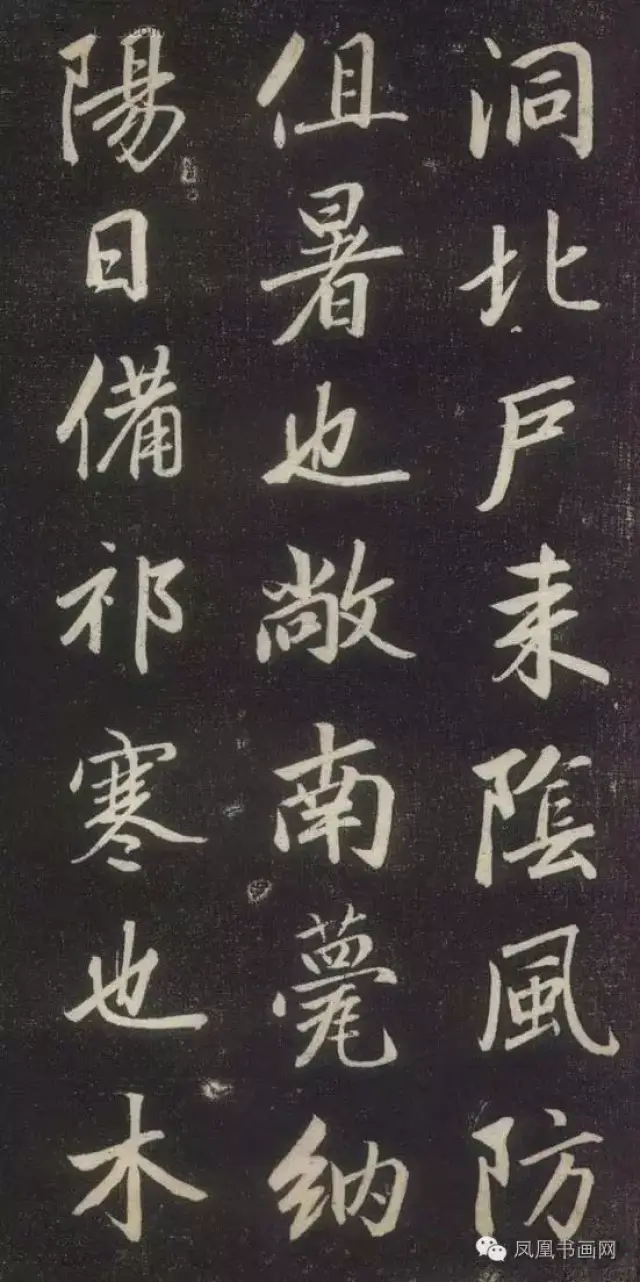 洞北戶来陰風防
徂暑也敞南甍納
陽日備祁寒也木
凤凰书画网